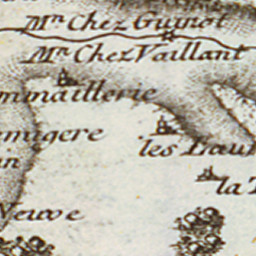 Mn Chez Guinot
Mn Chez Vaillant
mmaillerie
migere
les Lau
la
Neuve